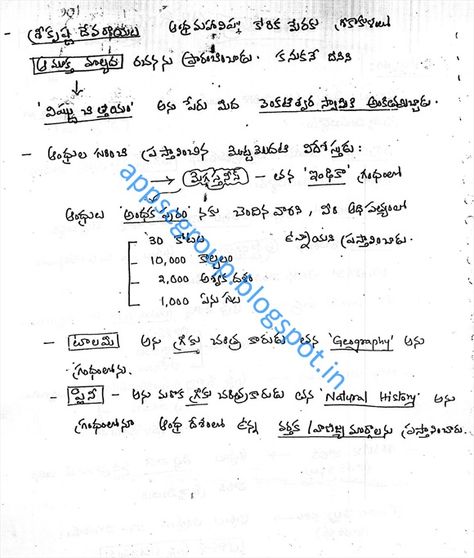 - శ్రీకృష్ణ దేవరాయలు ఆంధ్రమహావిష్ణు కోరిక మేరకు శ్రీకాకుళంలో
ఆముక్త మాల్యద రచనను ప్రారంభించాడు. కనుకనే దీనిని
'విష్ణు చిత్తీయం' అను పేరు మీద వెంకటేశ్వర స్వామికి అంకితమిచ్చాడు.
- ఆంధ్రుల గురించి ప్రస్తావించిన మొట్టమొదటి విదేశీయుడు:
→ మెగస్తనీస్ - తన 'ఇండికా' గ్రంథంలో
ఆంధ్రుల 'అంధక పురం' నకు చెందిన వారని, వీరి ఆధిపత్యంలో
30 కోటలు ఉన్నాయని ప్రస్తావించాడు.
10,000 కాల్బలం
2,000 అశ్వదళం
1,000 ఏనుగులు
- టాలమీ అను గ్రీకు చరిత్రకారుడు తన 'Geography' అను
గ్రంథంలోను.
- ప్లినీ - అను మరొక గ్రీకు చరిత్రకారుడు తన 'Natural History' అను
గ్రంథంలోనూ ఆంధ్ర దేశంలో ఉన్న వర్తక / వాణిజ్య మార్గాలను ప్రస్తావించారు.
appscgroup.blogspot.in